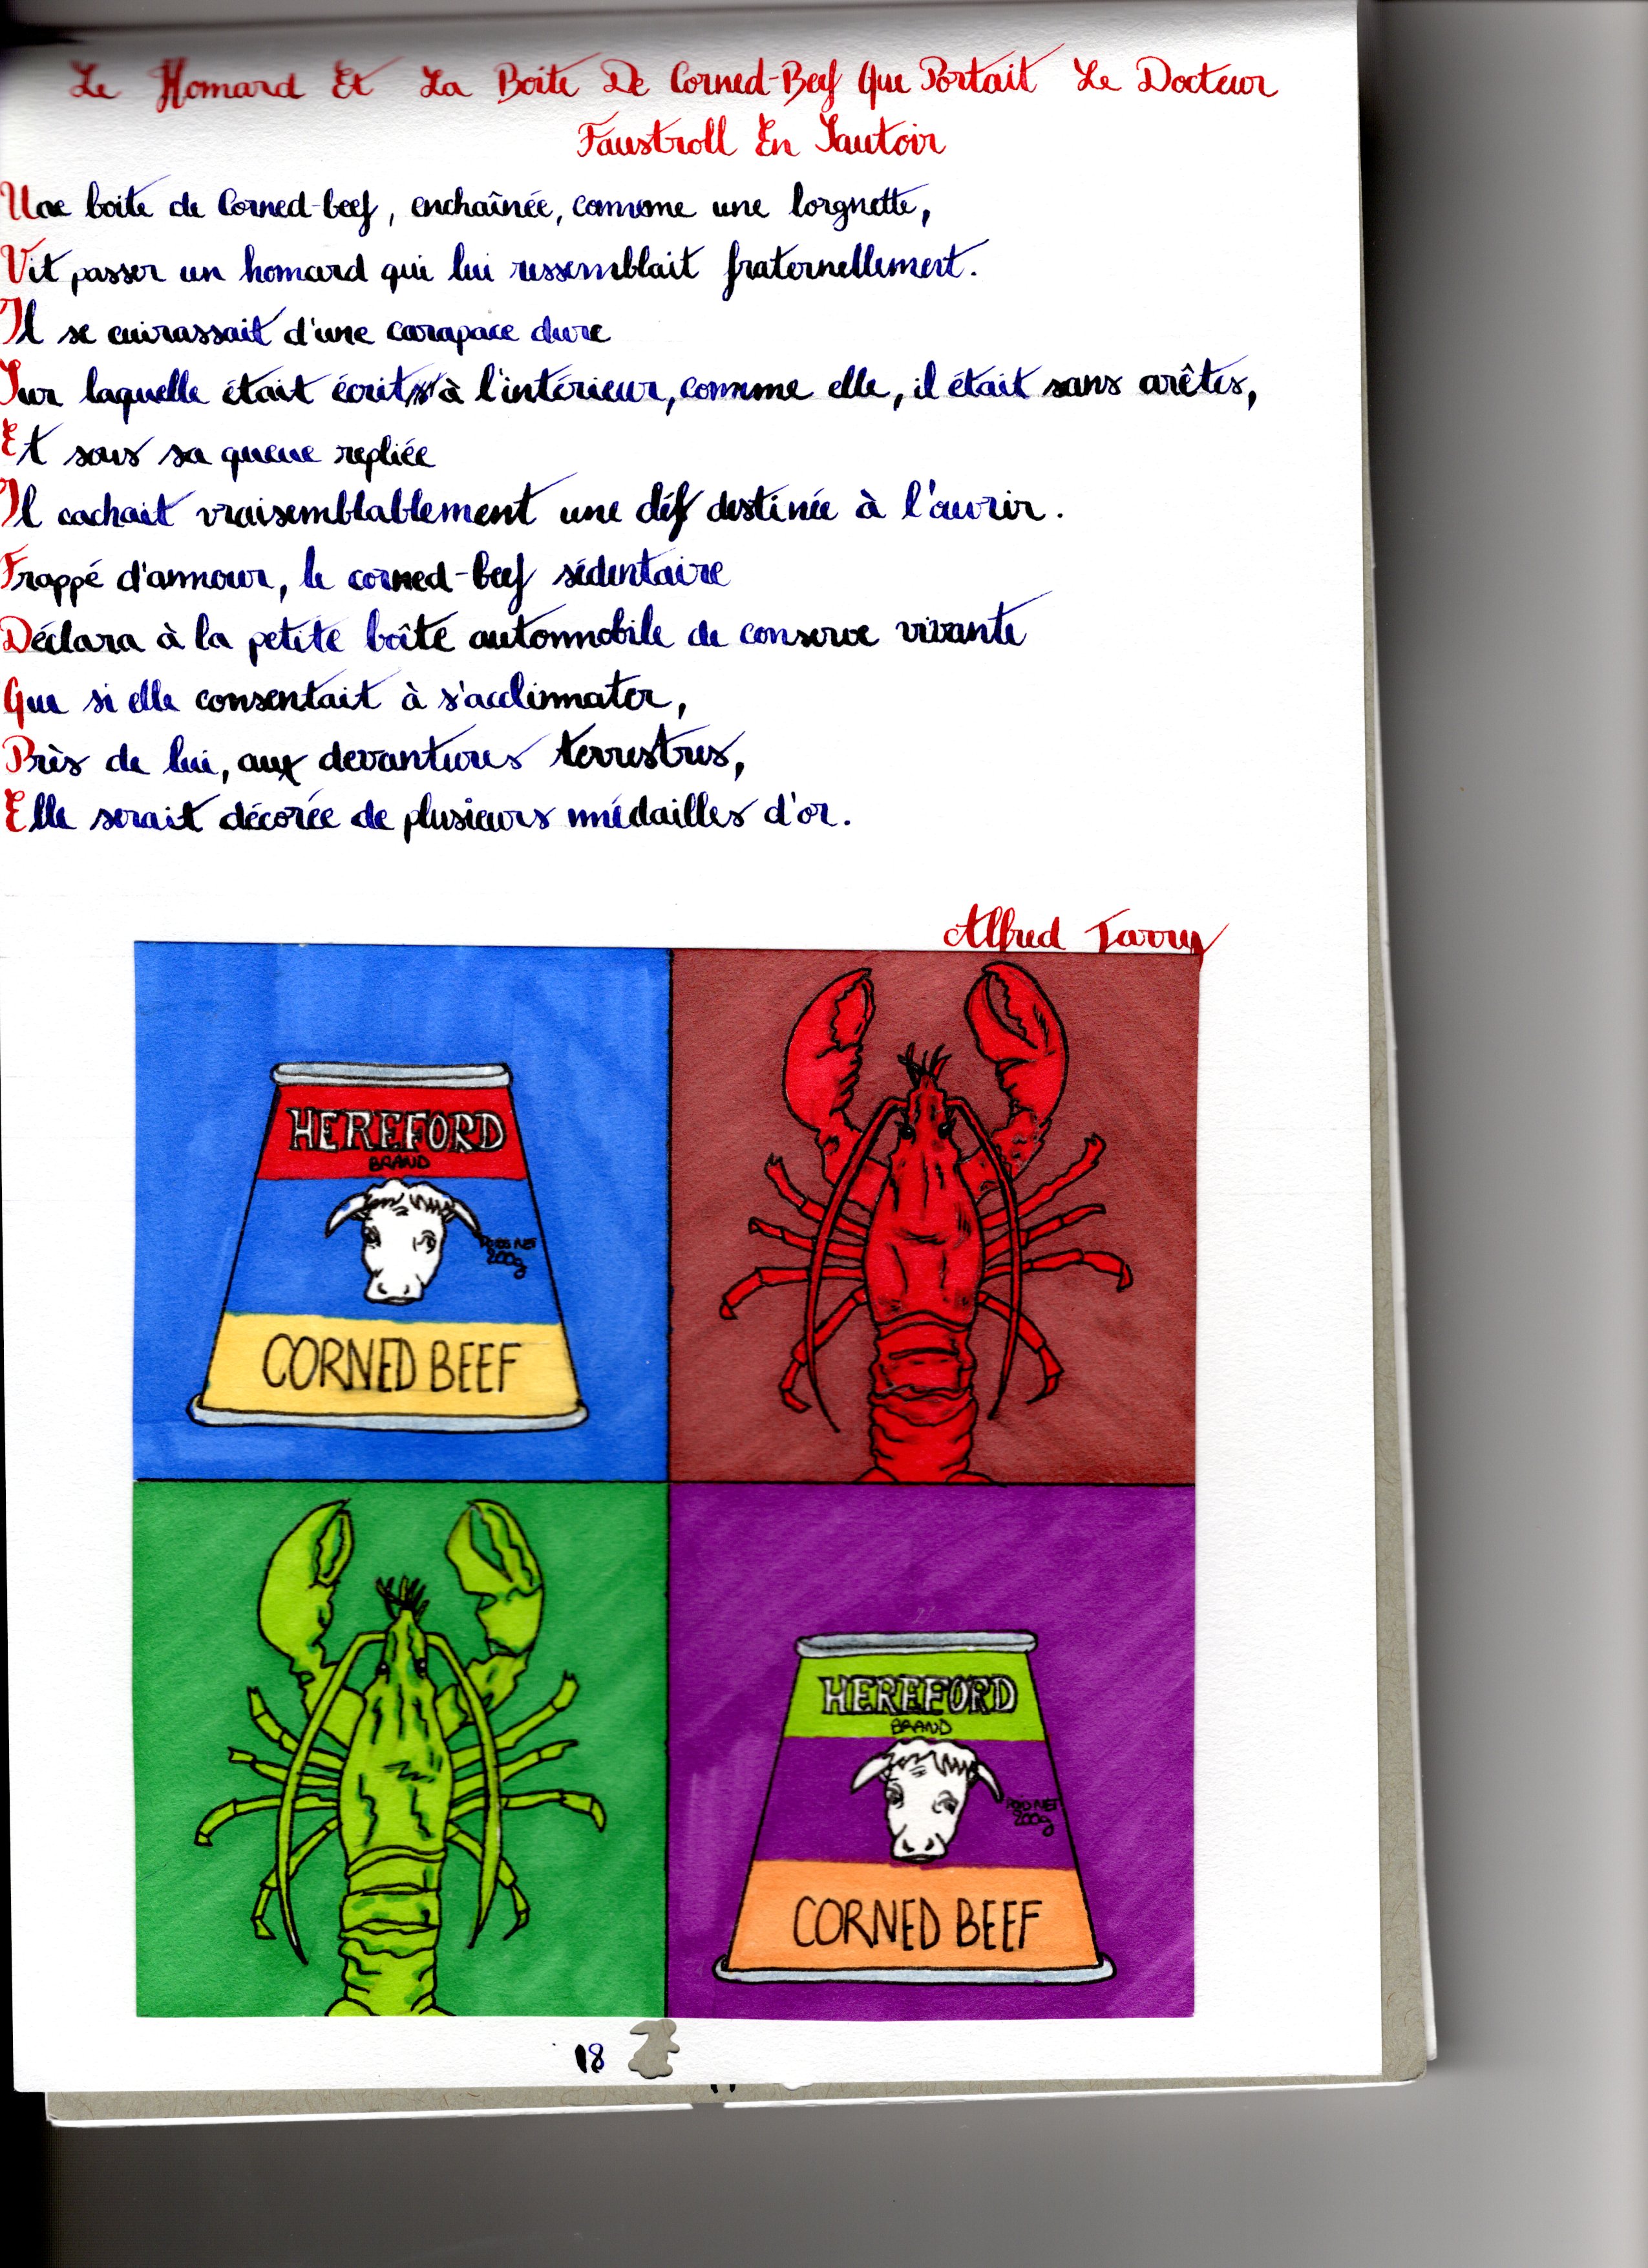 Le Homard Et La Boite De Corned-Beef Que Portait Le Docteur
Faustroll En Sautoir
Une boite de Corned-beef, enchaînée, comme une lorgnette,
Vit passer un homard qui lui ressemblait fraternellement.
Il se cuirassait d'une carapace dure
Sur laquelle était écrit à l'intérieur, comme elle, il était sans arêtes,
Et sous sa queue repliée
Il cachait vraisemblablement une cléf destinée à l'ouvrir.
Frappé d'amour, le corned-beef sédentaire
Déclara à la petite boîte automobile de conserve vivante
Que si elle consentait à s'acclimater,
Près de lui, aux devantures terrestres,
Elle serait décorée de plusieurs médailles d'or.
Alfred Jarry
HEREFORD
BRAND
POIDS NET
200g
CORNED BEEF
HEREFORD
BRAND
POIDS NET
200g
CORNED BEEF
18